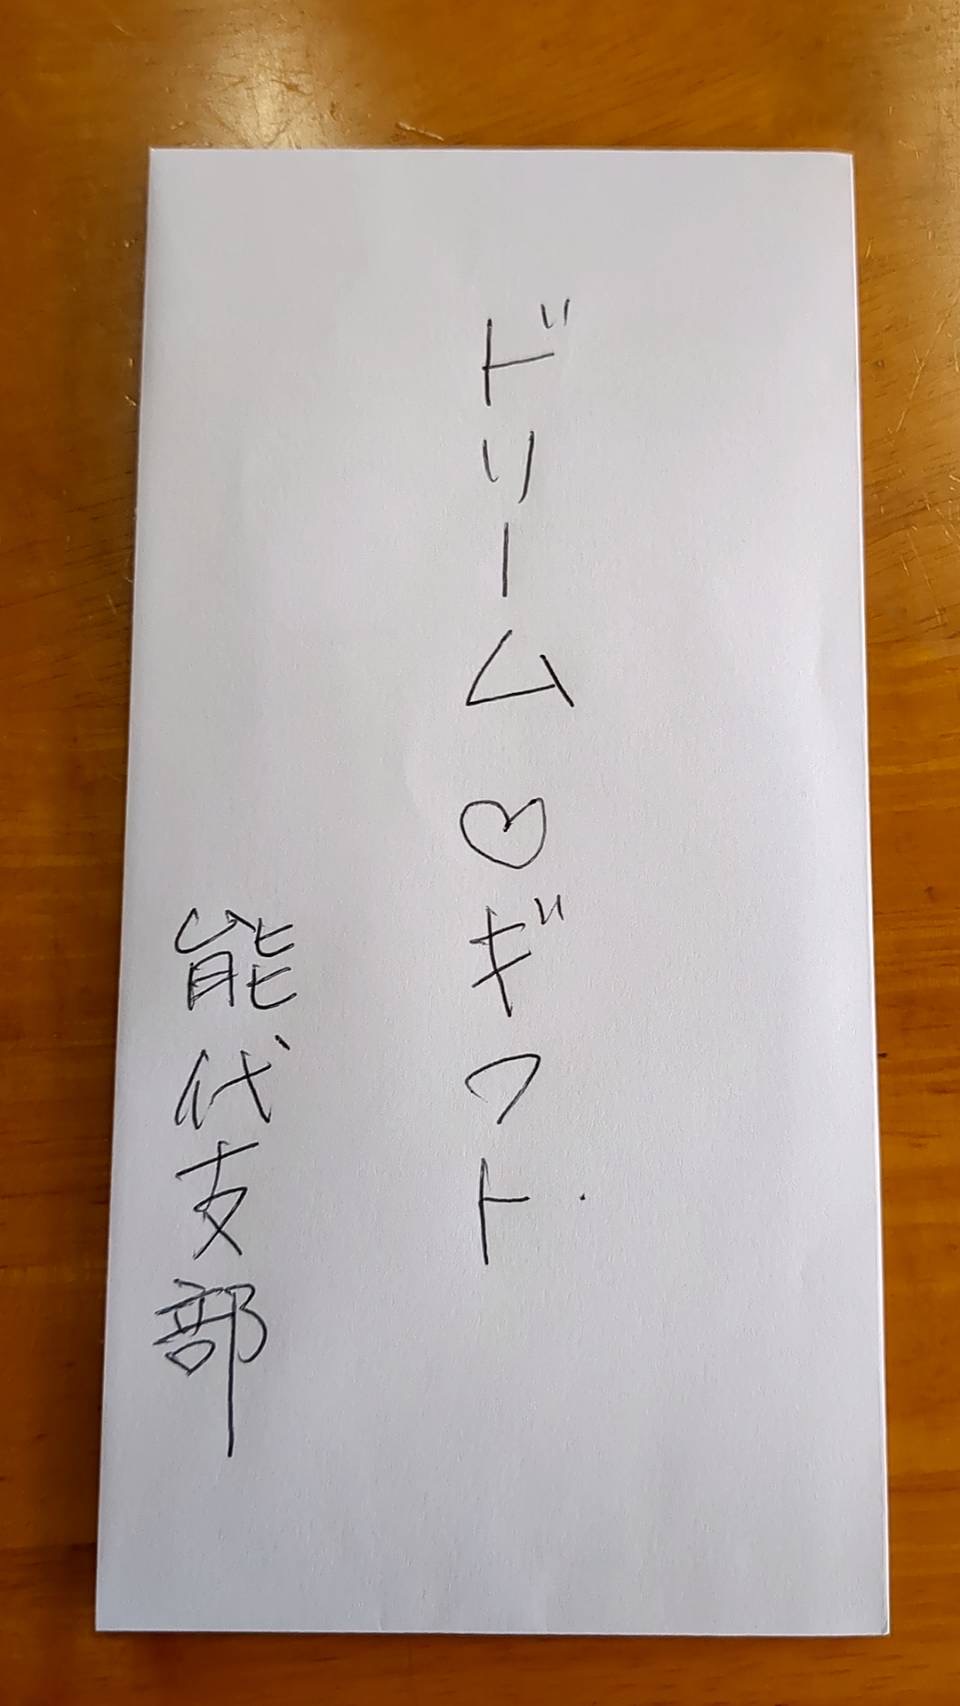 ドリーム♡ギフト
能代支部